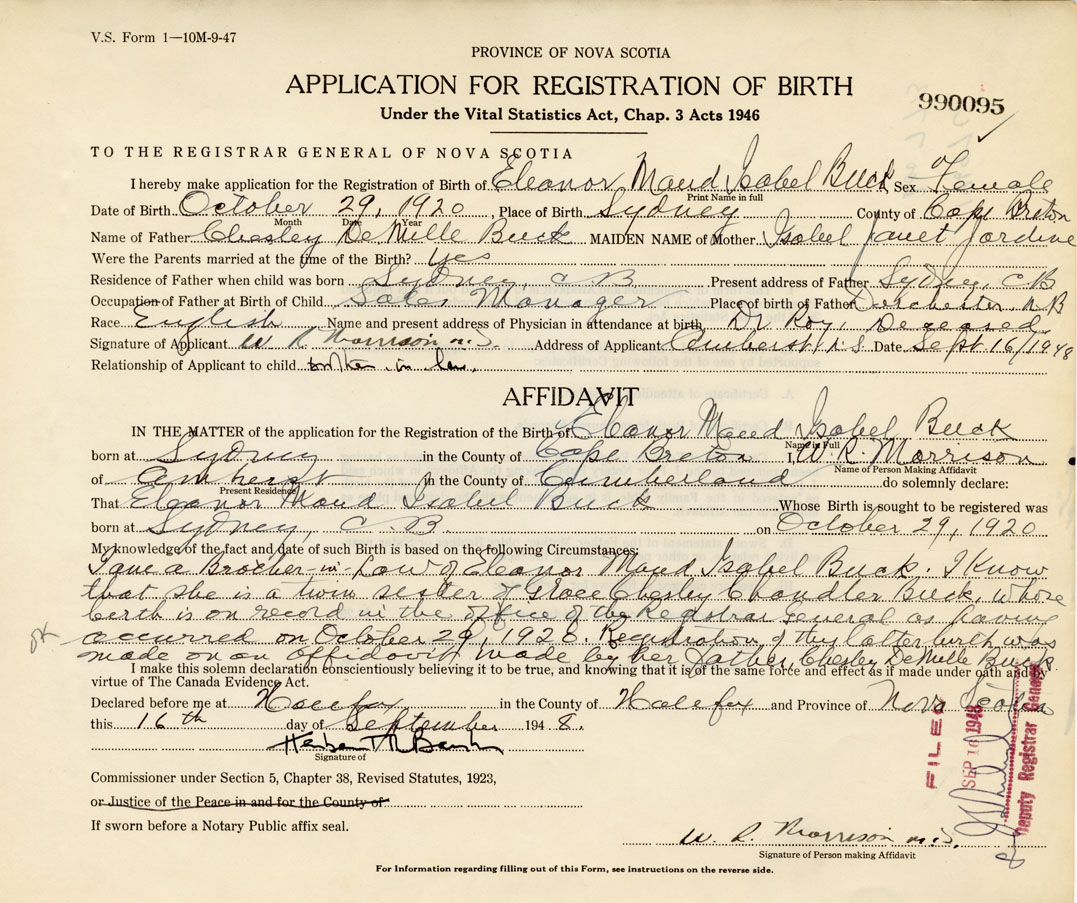 V.S. Form 1—10M-9-47
PROVINCE OF NOVA SCOTIA
APPLICATION FOR REGISTRATION OF BIRTH
990095
Under the Vital Statistics Act, Chap. 3 Acts 1946
TO THE REGISTRAR GENERAL OF NOVA SCOTIA
I hereby make application for the Registration of Birth of Eleanor Maud Isabel Buck, Sex Female
Print Name in full
Date of Birth October 29, 1920, Place of Birth Sydney County of Cape Breton
Month Date Year
Name of Father Chesley DeMille Buck MAIDEN NAME of Mother Isobel Janet Jardine
Were the Parents married at the time of the Birth? yes
Residence of Father when child was born Sydney, C B Present address of Father Sydney, C B
Occupation of Father at Birth of Child Sales Manager Place of birth of Father Dorchester N B
Race English Name and present address of Physician in attendance at birth Dr Roy, Deceased
Signature of Applicant W R Morrison M.D. Address of Applicant Amherst N.S. Date Sept 16/1948
Relationship of Applicant to child brother in law.
AFFIDAVIT
IN THE MATTER of the application for the Registration of the Birth of Eleanor Maud Isobel Buck
Name in Full
born at Sydney in the County of Cape Breton I, W. R. Morrison
Name of Person Making Affidavit
of Amherst in the County of Cumberland do solemnly declare:
Present Residence
That Eleanor Maud Isobel Buck Whose Birth is sought to be registered was
born at Sydney, C.B. on October 29, 1920
My knowledge of the fact and date of such Birth is based on the following Circumstances:
I am a Brother-in-Law of Eleanor Maud Isobel Buck. I Know
that she is a twin sister of Grace Chesley Chandler Buck, whose
birth is on record in the office of the Registrar General as having
occurred on October 29, 1920. Registration of the latter birth was
made on an affidavit made by her father Chesley DeMille Buck
I make this solemn declaration conscientiously believing it to be true, and knowing that it is of the same force and effect as if made under oath and by
virtue of The Canada Evidence Act.
Declared before me at Halifax in the County of Halifax and Province of Nova Scotia
this 16th day of September 1948.
Signature of
Commissioner under Section 5, Chapter 38, Revised Statutes, 1923,
or Justice of the Peace in and for the County of
If sworn before a Notary Public affix seal.
W. R. Morrison M.D.
Signature of Person making Affidavit
For Information regarding filling out of this Form, see instructions on the reverse side.
FILED
SEP 16 1948
Deputy Registrar General